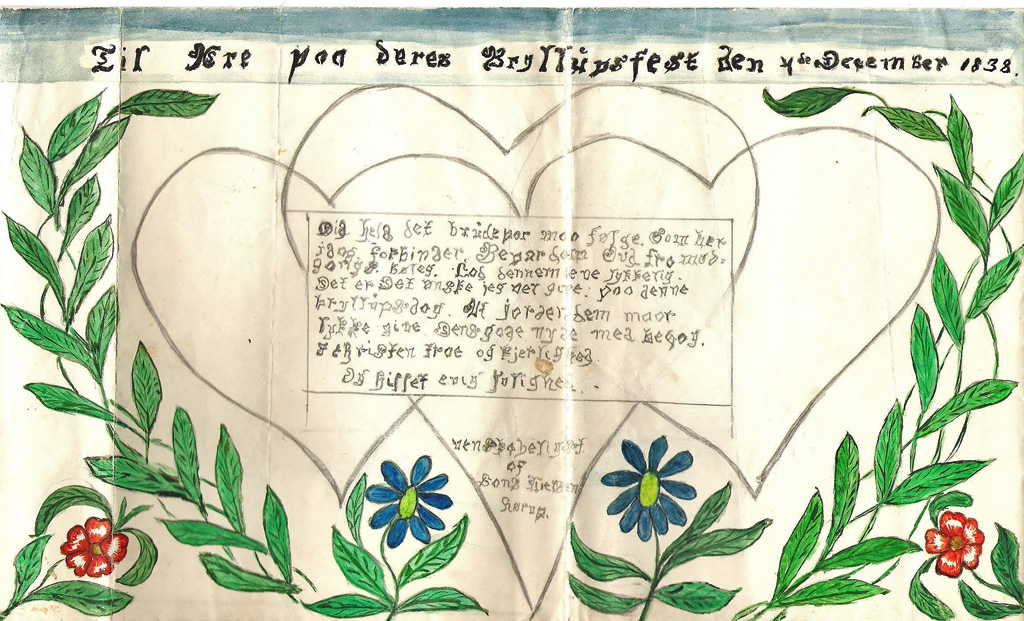 Til Ære paa deres Bryllúpsfest den 4de December 1838.
Did held det brúdepar maa følge. Som her
idag forbinder. Bevar dem Gud fra
Lad dennem leve lykkelig.
Det er Det ønske jeg vel give. paa denne
bryllúpsdag. At jorden dem maa
lykke give Dens gode nyde med behag.
I Christen troe og kjerlighed
Og hisset evig salighed.
venskabeligst
af
Sens Nielsen